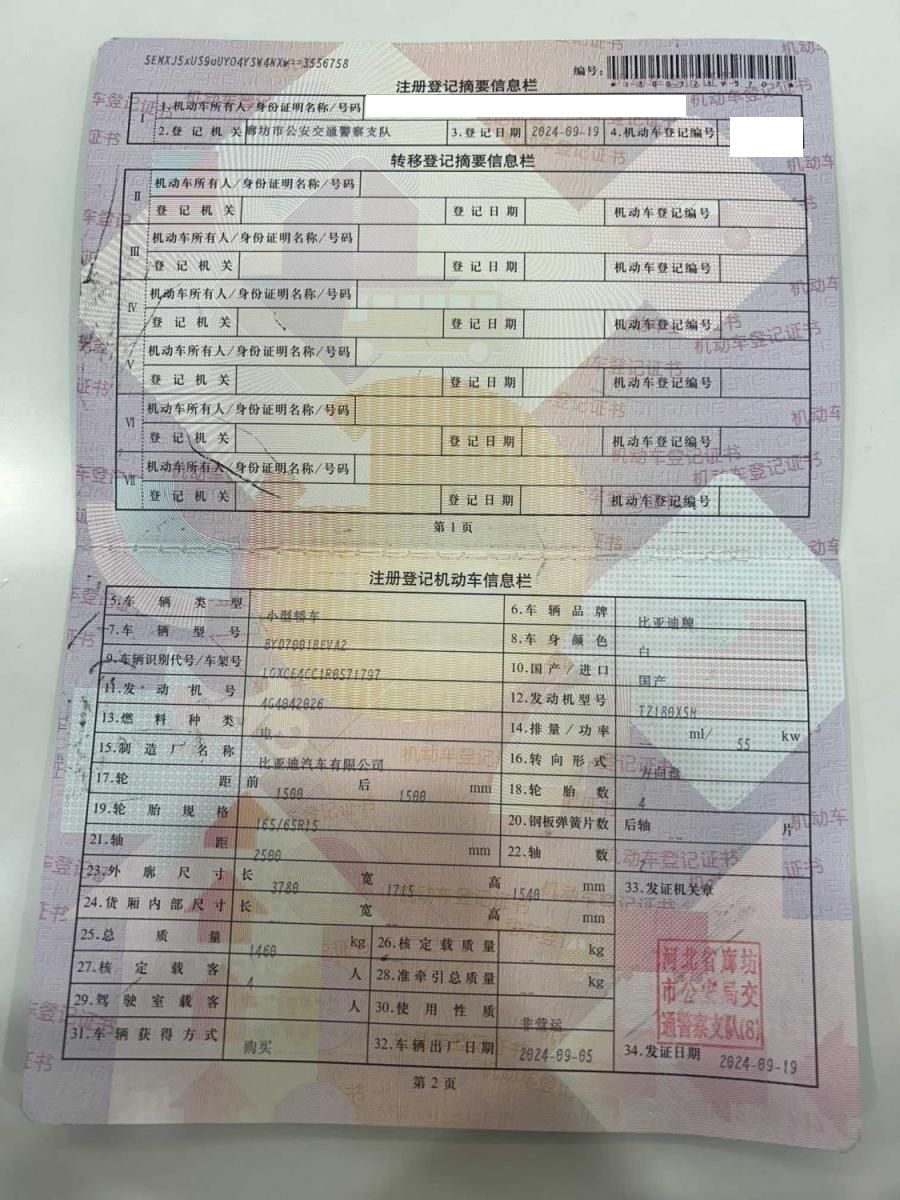 SEMXJ5xUS9uUYO4YSW4NXw==3556758
编号:
注册登记摘要信息栏
I 1.机动车所有人/身份证明名称/号码
2.登记机关 廊坊市公安交通警察支队 3.登记日期 2024-09-19 4.机动车登记编号
转移登记摘要信息栏
II 机动车所有人/身份证明名称/号码
登记机关 登记日期 机动车登记编号
III 机动车所有人/身份证明名称/号码
登记机关 登记日期 机动车登记编号
IV 机动车所有人/身份证明名称/号码
登记机关 登记日期 机动车登记编号
V 机动车所有人/身份证明名称/号码
登记机关 登记日期 机动车登记编号
VI 机动车所有人/身份证明名称/号码
登记机关 登记日期 机动车登记编号
VII 机动车所有人/身份证明名称/号码
登记机关 登记日期 机动车登记编号
第1页
注册登记机动车信息栏
5.车辆类型 小型轿车 6.车辆品牌 比亚迪牌
7.车辆型号 BYD7001BEVA2 8.车身颜色 白
9.车辆识别代号/车架号 LGXCE4CC1R0571797 10.国产/进口 国产
11.发动机号 4G4042026 12.发动机型号 TZ180XSH
13.燃料种类 电 14.排量/功率 -- ml/ 55 kw
15.制造厂名称 比亚迪汽车有限公司 16.转向形式 方向盘
17.轮距 前 1500 后 1500 mm 18.轮胎数 4
19.轮胎规格 165/65R15 20.钢板弹簧片数 后轴 -- 片
21.轴距 2500 mm 22.轴数 2
23.外廓尺寸 长 3780 宽 1715 高 1540 mm 33.发证机关章
24.货厢内部尺寸 长 宽 高 mm
25.总质量 1460 kg 26.核定载质量 kg
27.核定载客 4 人 28.准牵引总质量 -- kg
29.驾驶室载客 人 30.使用性质 非营运
河北省廊坊
市公安局交
通警察支队(8)
31.车辆获得方式 购买 32.车辆出厂日期 2024-09-05 34.发证日期 2024-09-19
第2页